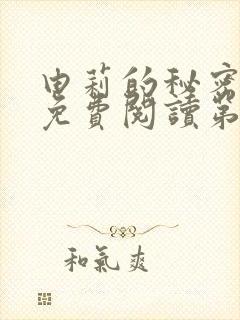 由莉的秘密
免費閱讀第
和氣爽